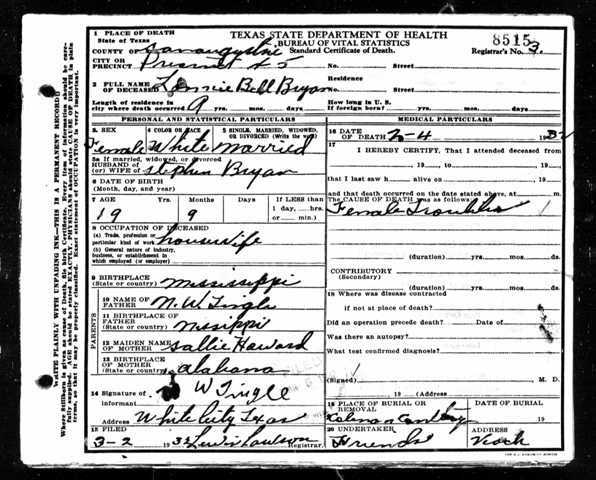 1 PLACE OF DEATH
State of Texas
TEXAS STATE DEPARTMENT OF HEALTH
BUREAU OF VITAL STATISTICS
Standard Certificate of Death.
8515
Registrar's No. 3
COUNTY OF
CITY OR
PRECINCT Precinct # 5 No. Street
2 FULL NAME
OF DECEASED Lonnie Bell Bryan
Residence
No. Street
Length of residence in
city where death occurred 9 yrs. mos. days
How long in U. S.
if foreign born? yrs. mos. days
PERSONAL AND STATISTICAL PARTICULARS
3 SEX
Female
4 COLOR OR RACE
White
5 SINGLE, MARRIED, WIDOWED,
OR DIVORCED (Write the word)
Married
5a If married, widowed, or divorced
HUSBAND OF
(or) WIFE OF Stephen Bryan
6 DATE OF BIRTH
(Month, day, and year)
7 AGE Yrs. Months Days
19 9
If LESS than
1 day, hrs.
or min.)
8 OCCUPATION OF DECEASED
(a) Trade, profession or
particular kind of work housewife
(b) General nature of industry,
business, or establishment in
which employed (or employer)
9 BIRTHPLACE
(State or country) Mississippi
PARENTS
10 NAME OF
FATHER M. W Tingle
11 BIRTHPLACE OF
FATHER
(State or country) Missippi
12 MAIDEN NAME
OF MOTHER Sallie Howard
13 BIRTHPLACE
OF MOTHER
(State or country) alabama
14 Signature of
informant W Tingle
Address White City Texas
15 FILED
3-2 1932 Registrar.
MEDICAL PARTICULARS
16 DATE
OF DEATH 2-4 1932
17
I HEREBY CERTIFY, That I attended deceased
from , 19 , to , 19
that I last saw h alive on , 19
and that death occurred on the date stated above, at m.
The CAUSE OF DEATH was as follows:
Female Troubles
(duration) yrs. mos. ds.
CONTRIBUTORY
(Secondary)
(duration) yrs. mos. days
18 Where was disease contracted
if not at place of death?
Did an operation precede death? Date of
Was there an autopsy?
What test confirmed diagnosis?
(Signed) , M. D.
, 19 (Address)
19 PLACE OF BURIAL OR
REMOVAL
DATE OF BURIAL
19
20 UNDERTAKER
Friends
ADDRESS
WRITE PLAINLY WITH UNFADING INK—THIS IS A PERMANENT RECORD